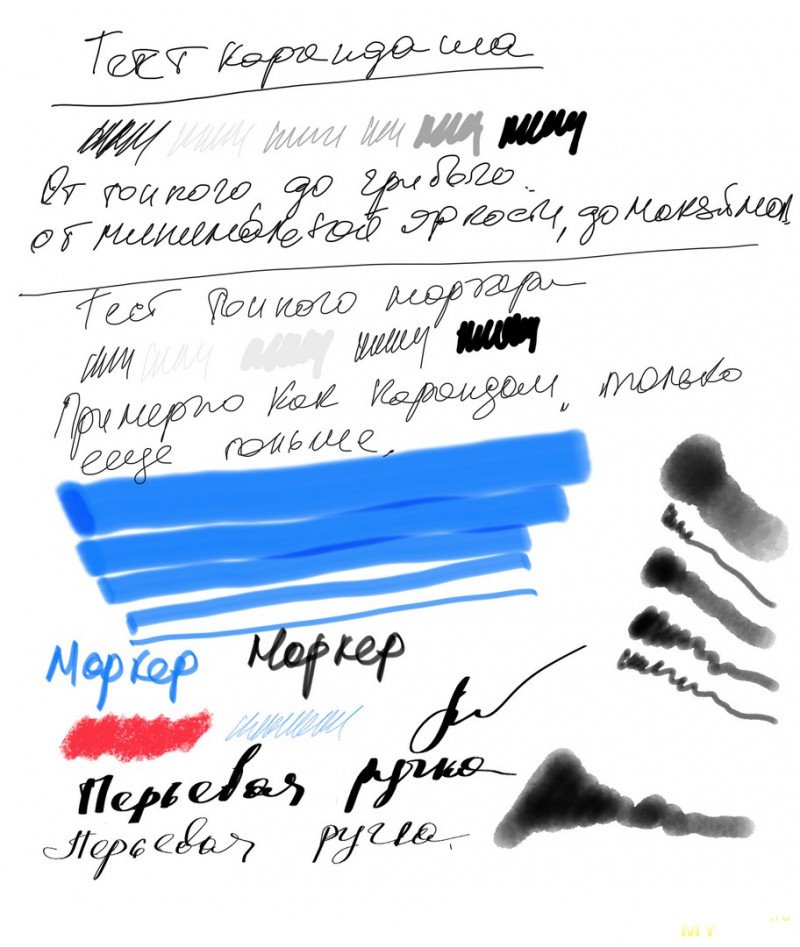 Тест карандаша
От тонкого до грубого.
от минимальной яркости, до максимал
Тест тонкого маркера
Примерно как карандаш, только
еще тоньше.
Маркер Маркер
Перьевая ручка
Перьевая ручка.
MY